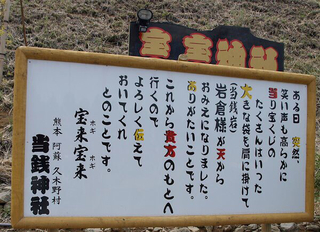 宝来宝来神社
ある日 突然、
笑い声も高らかに
当り宝くじの
たくさんはいった
大きな袋を肩に掛けて
(当銭岩)
岩倉様が天から
おみえになりました。
ありがたいことです。
これから貴方のもとへ
行くので
よろしく伝えて
おいてくれ
とのことです。
ホギ ホギ
宝来宝来
熊本 阿蘇 久木野村
当銭神社